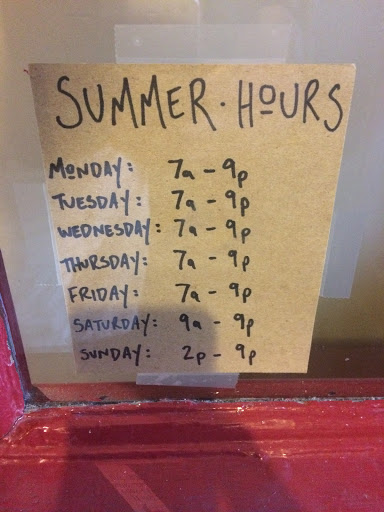 SUMMER · HOURS
MONDAY: 7a - 9p
TUESDAY: 7a - 9p
WEDNESDAY: 7a - 9p
THURSDAY: 7a - 9p
FRIDAY: 7a - 9p
SATURDAY: 9a - 9p
SUNDAY: 2p - 9p